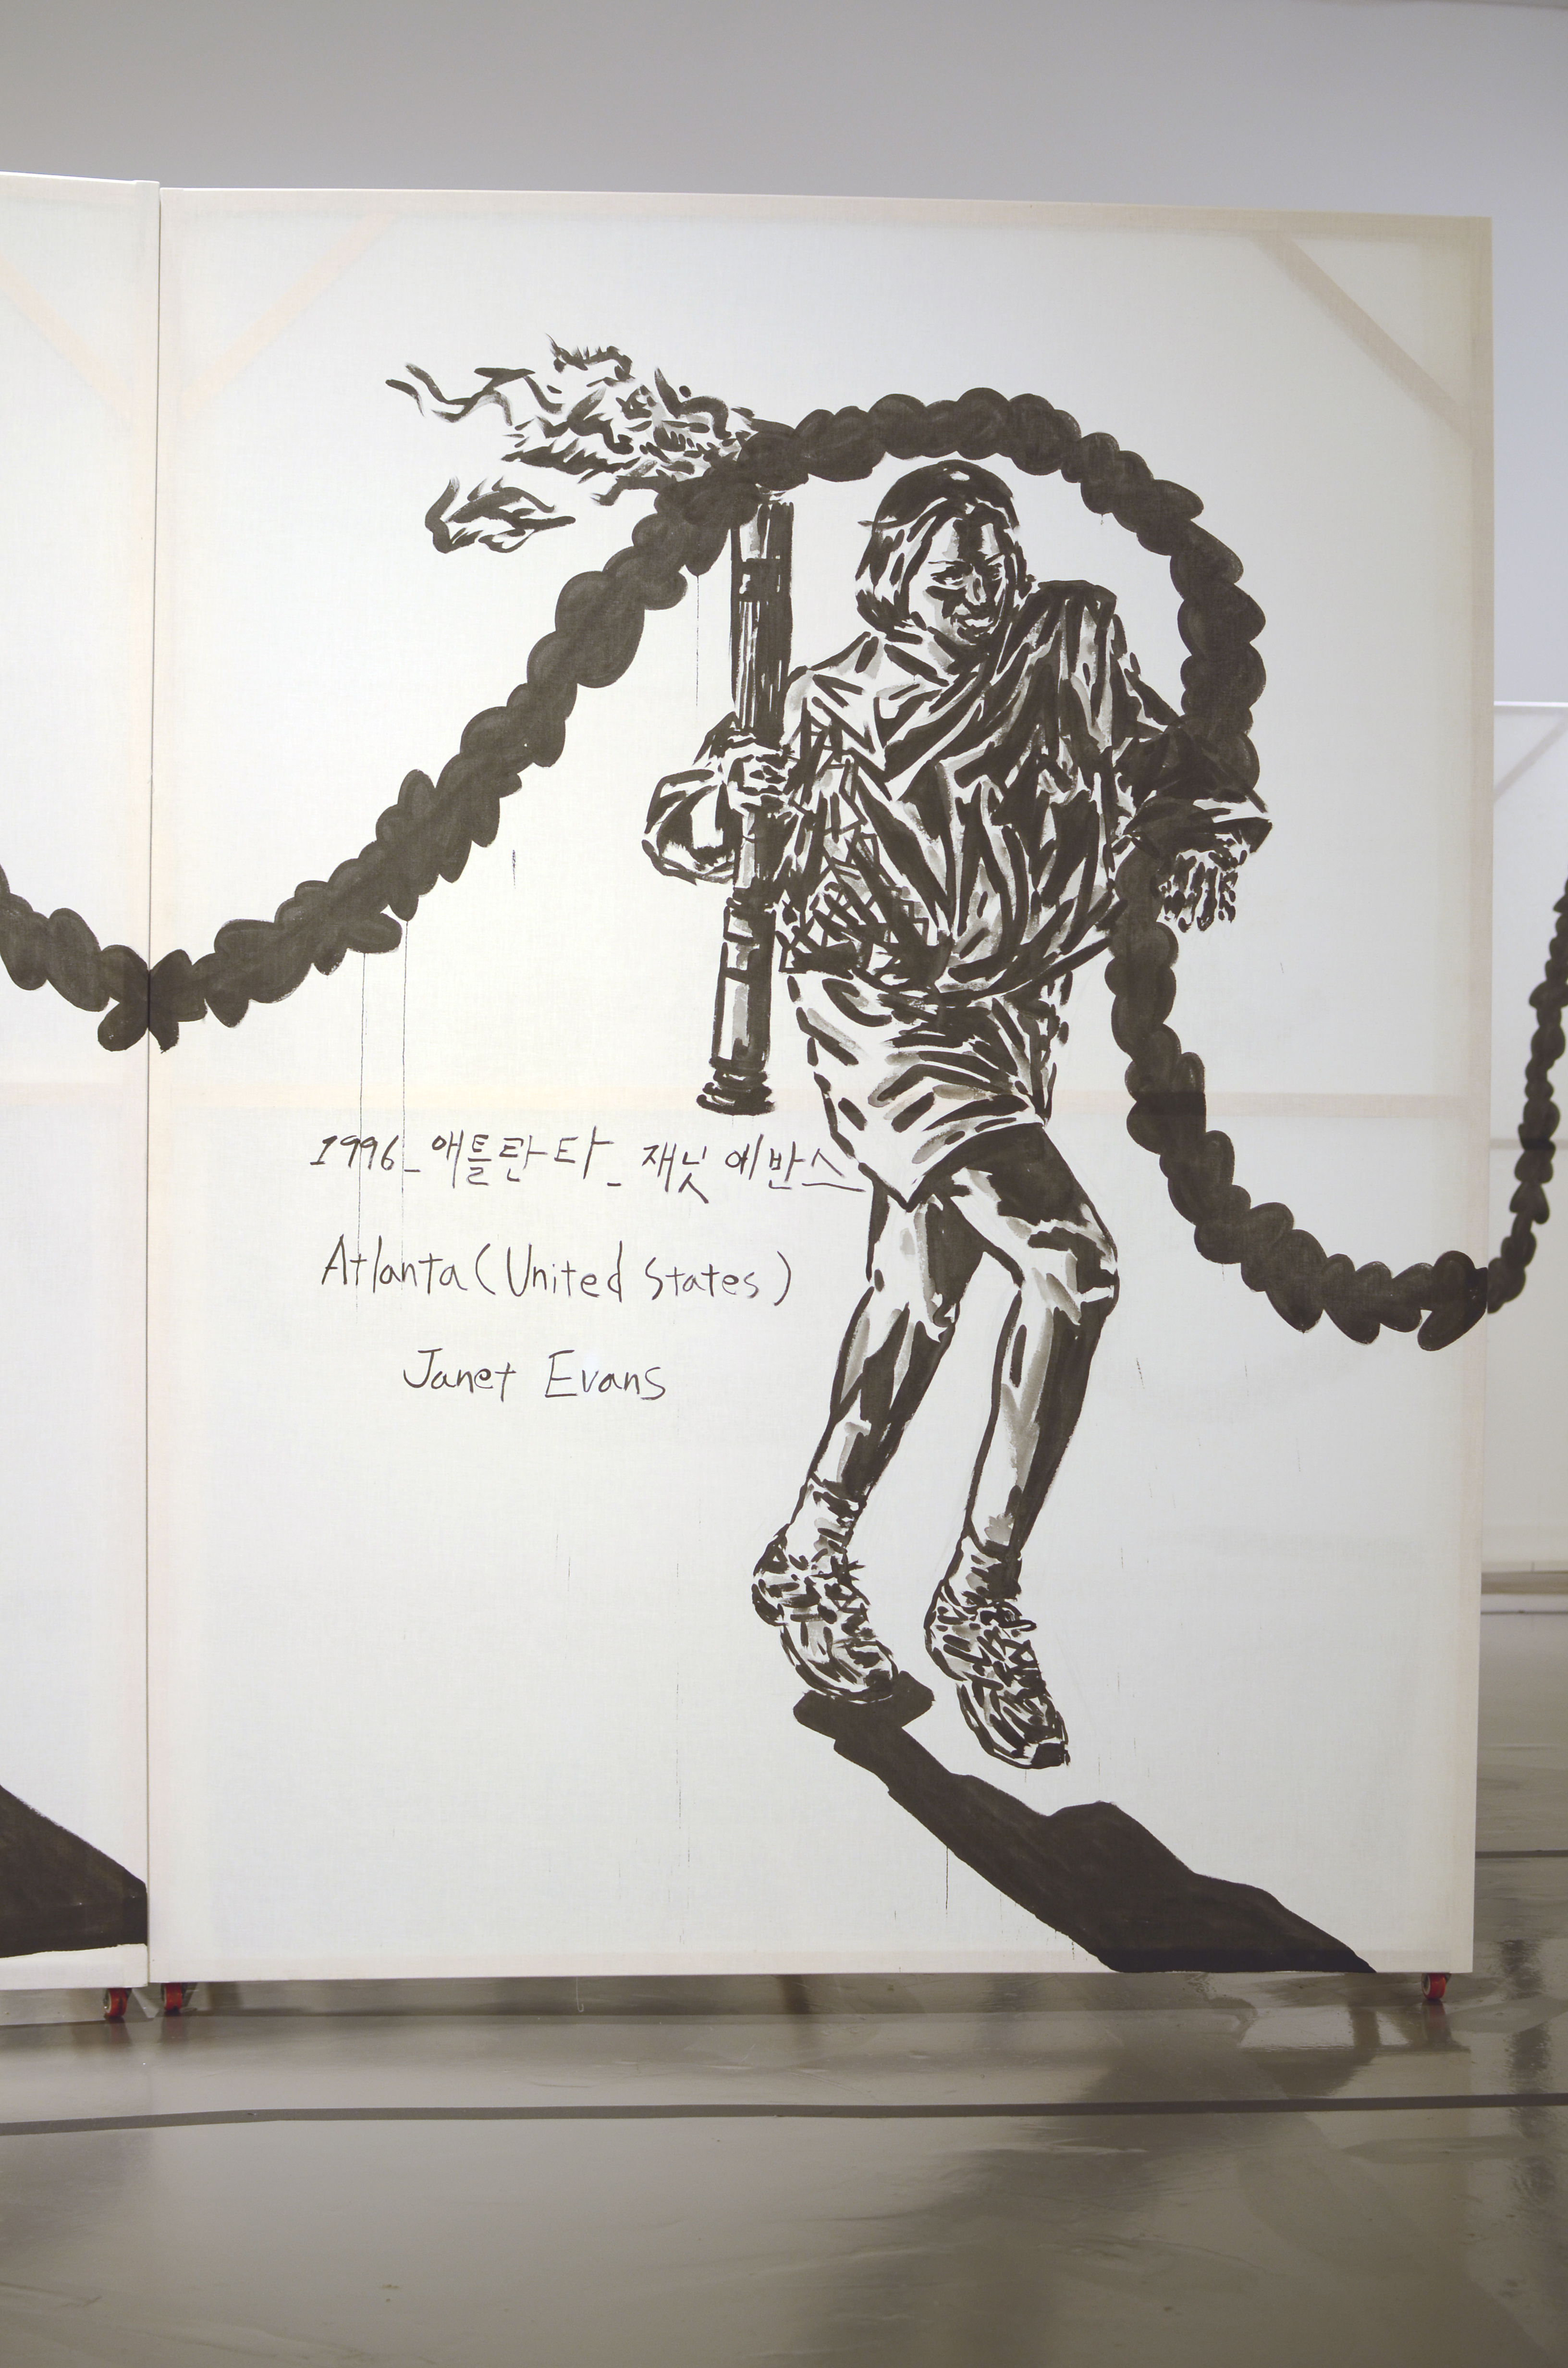 1996_애틀란타_재닛 에반스
Atlanta (United States)
Janet Evans